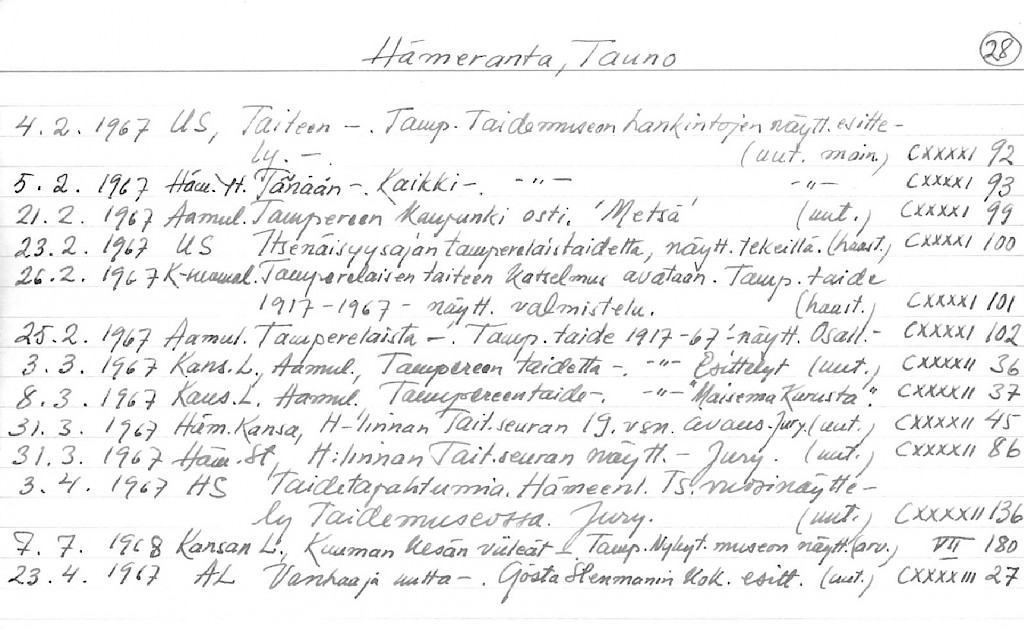 Hämeranta, Tauno 28
4.2. 1967 US, Taiteen -. Tamp. Taidemuseon hankintojen näytt. esitte-
ly. -. (uut. main.) CXXXXI 92
5.2. 1967 Häm. Y. Tänään -. Kaikki -. -"- -"- CXXXXI 93
21.2. 1967 Aamul. Tampereen Kaupunki osti. 'Metsä' (uut.) CXXXXI 99
23.2. 1967 US Itsenäisyysajan tamperelaistaidetta, näytt. tekeillä. (haast.) CXXXXI 100
26.2. 1967 K-uumal. Tamperelaisen taiteen Katselmus avataan. Tamp. taide
1917-1967 - näytt. valmistelu. (haast.) CXXXXI 101
25.2. 1967 Aamul. Tamperelaista -'. Tamp. taide 1917-67'-näytt. Osall.- CXXXXI 102
3.3. 1967 Kans. L., Aamul., Tampereen taidetta -. -"- Esittelyt (uut.) CXXXXII 36
8.3. 1967 Kans. L. Aamul. Tampereentaide-. -"- "Maisema Kurusta". CXXXXII 37
31.3. 1967 Häm. Kansa, H-linnan Tait.seuran 19. vsn. avaus. Jury. (uut.) CXXXXII 45
31.3. 1967 Häm. St, H:linnan Tait.seuran näytt. - Jury. (uut.) CXXXXII 86
3.4. 1967 HS Taidetapahtumia. Hämeenl. Ts. vuosinäytte-
ly Taidemuseossa. Jury. (uut.) CXXXXII 136
7.7. 1968 Kansan L., Kuuman Kesän viileät - Tamp. Nykyt. museon näytt. (arv.) VII 180
23.4. 1967 AL Vanhaa ja uutta -. Gösta Stenmanin Kok. esitt. (uut.) CXXXXIII 27